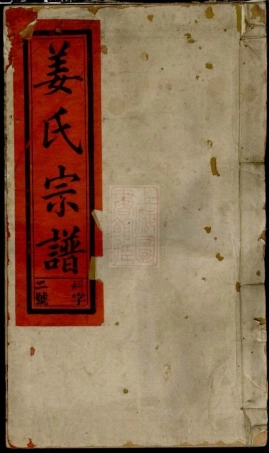 姜氏宗譜
字
二號